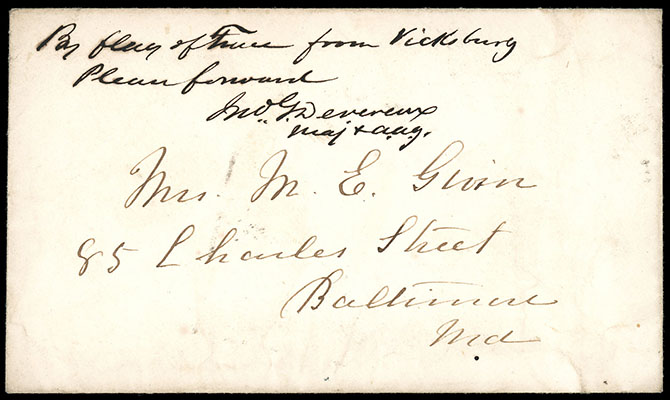 By flag of Truce from Vicksburg
Please forward
Jno. G. Devereux
Maj & a.a.g.
Mrs. M. E. Gwin
85 Charles Street
Baltimore
Md